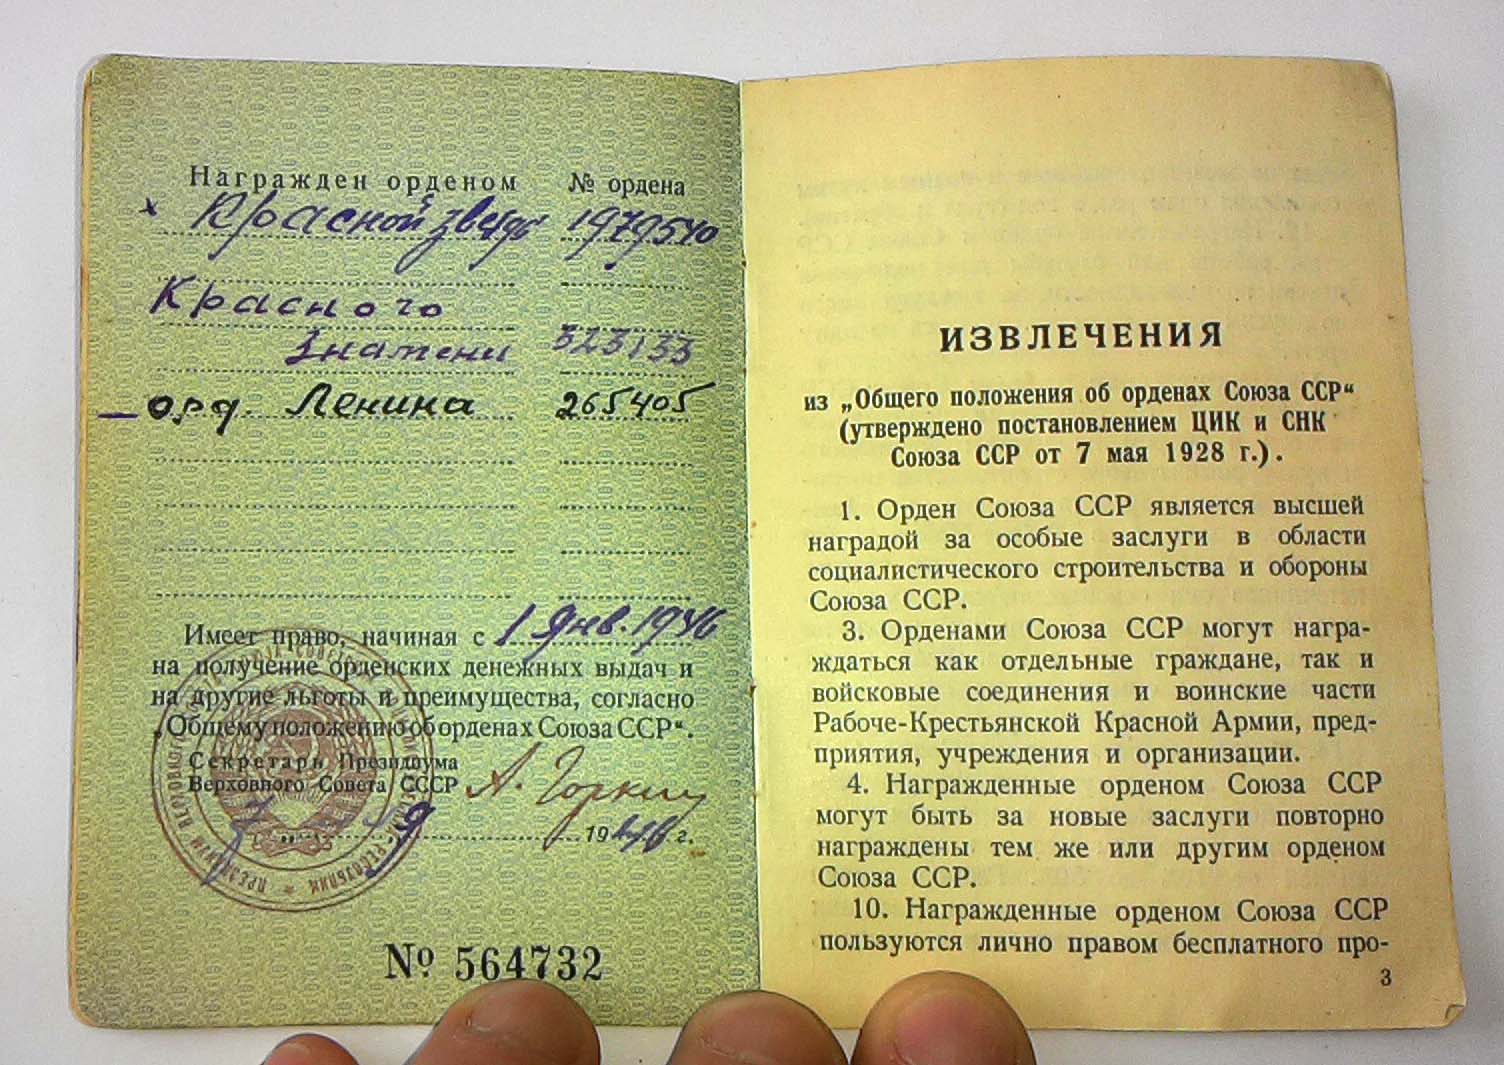 Награжден орденом № ордена
Красной звезды 1979540
Красного
Знамени 323133
орд. Ленина 265405
Имеет право, начиная с 1 Янв. 1946
на получение орденских денежных выдач и
на другие льготы и преимущества, согласно
„Общему положению об орденах Союза ССР“.
Секретарь Президиума
Верховного Совета СССР А. Горкин
1946 г.
№ 564732
ИЗВЛЕЧЕНИЯ
из „Общего положения об орденах Союза ССР“
(утверждено постановлением ЦИК и СНК
Союза ССР от 7 мая 1928 г.).
1. Орден Союза ССР является высшей
наградой за особые заслуги в области
социалистического строительства и обороны
Союза ССР.
3. Орденами Союза ССР могут награ-
ждаться как отдельные граждане, так и
войсковые соединения и воинские части
Рабоче-Крестьянской Красной Армии, пред-
приятия, учреждения и организации.
4. Награжденные орденом Союза ССР
могут быть за новые заслуги повторно
награждены тем же или другим орденом
Союза ССР.
10. Награжденные орденом Союза ССР
пользуются лично правом бесплатного про-
3